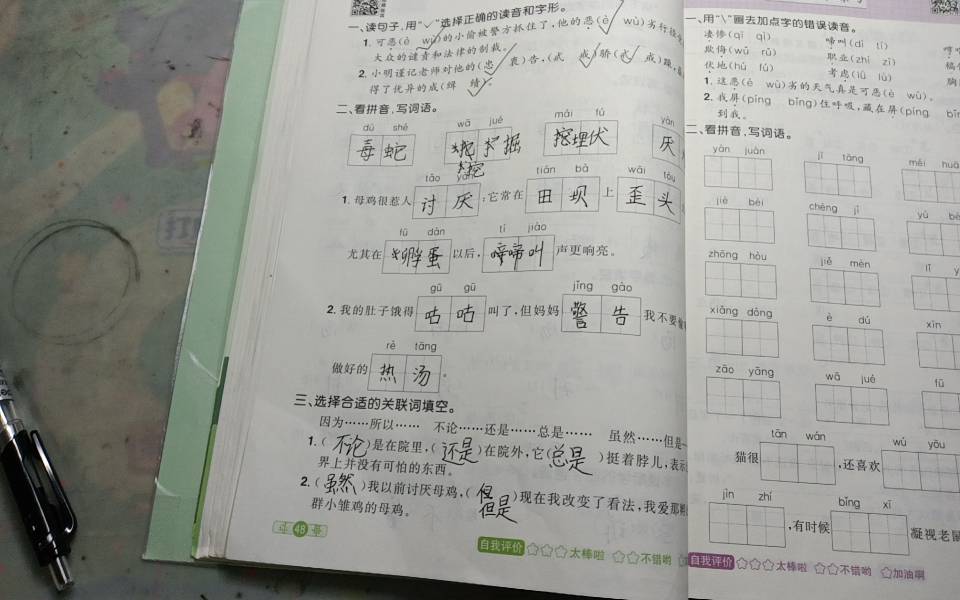 一、读句子,用“✓”选择正确的读音和字形。
1. 可恶(è wù)的小偷被警方抓住了,他的恶(è wù)劣行径
大众的谴责和法律的制裁。
2. 小明谨记老师对他的(忠 衷)告,(戒 戒)骄(戒 戒)躁,
得了优异的成(绩 绩)。
二、看拼音,写词语。
dú shé
毒蛇
wā jué
挖掘
mái fú
埋伏
yàn
厌
tǎo yàn
1. 母鸡很惹人讨厌;它常在田坝上歪头
tián bà
wāi tóu
fū dàn
尤其在孵蛋以后,啼叫声更响亮。
tí jiào
gū gū
2. 我的肚子饿得咕咕叫了,但妈妈警告我不要
jǐng gào
rè tāng
做好的热汤。
三、选择合适的关联词填空。
因为……所以…… 不论……还是……总是…… 虽然……但是
1. (不论)是在院里,(还是)在院外,它(总是)挺着脖儿,表示
界上并没有可怕的东西。
2. (虽然)我以前讨厌母鸡,(但是)现在我改变了看法,我爱那
群小雏鸡的母鸡。
48
自我评价 ☆☆☆太棒啦 ☆☆不错哟
一、用“\”画去加点字的错误读音。
凄惨(qī qì) 啼叫(dí tí)
欺侮(wǔ rǔ) 职业(zhí zī)
伏地(hú fú) 考虑(lǜ lù)
1. 这恶(è wù)劣的天气真是可恶(è wù)。
2. 我屏(píng bǐng)住呼吸,藏在屏(píng
到我。
二、看拼音,写词语。
yàn juàn
jī tāng
méi
jiè bèi
chéng jì
zhōng hòu
jiě mèn
xiāng dāng
è dú
xīn
zāo yāng
wā jué
fū
tān wán
猫很 ,还喜欢
wú yōu
jìn zhí
,有时候 凝视老鼠
bǐng xī
自我评价 ☆☆☆太棒啦 ☆☆不错哟 ☆加油啊